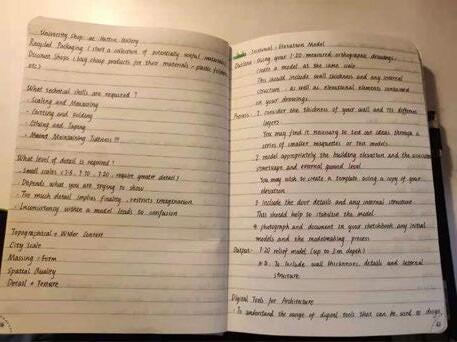 University Shop at Hatton Gallery
Recycled Packaging (start a collection of potentially useful materials)
Discount Shops (buy cheap products for their materials - plastic folders
etc)
What technical skills are required?
- Scaling and Measuring
- Cutting and Folding
- Gluing and Taping
- Maintaining Tidiness!!!
What level of detail is required?
- Small scales (1:5, 1:10, 1:20, require greater detail)
- Depends what you are trying to show
- Too much detail implies finality, restricts imagination
- Inconsistency within a model leads to confusion
Topographical + Wider Context
City Scale
Massing + Form
Spatial Quality
Detail + Texture
Internal Elevation Model
Outline: Using your 1:20 measured orthographic drawings,
create a model at the same scale
This should include wall thickness and any internal
structure, as well as elevational elements contained
on your drawings
Process: 1 consider the thickness of your wall and its different
layers
You may find it necessary to test our ideas through a
series of smaller maquettes or test models
2 model appropriately the building elevation and the
streetscape and external ground level
You may wish to create a template using a copy of your
elevation
3 Include the door details and any internal structure
This should help to stabilise the model
4 photograph and document in your sketchbook any initial
models and the modelmaking process
Output: 1:20 relief model (up to 3m depth)
To include wall thickness, details and internal
structure
Digital Tools for Architecture
- To understand the range of digital tools that can be used to design